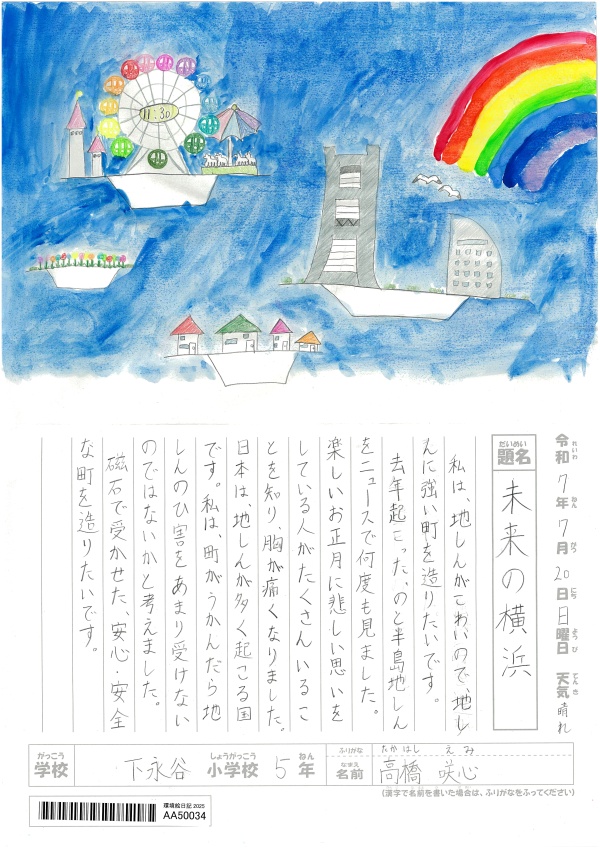 11:30
令和7年7月20日日曜日 天気 晴れ
れいわ ねん がつ にち ようび てんき
だいめい
題名 未来の横浜
私は、地しんがこわいので、地し
んに強い町を造りたいです。
去年起こった、のと半島地しん
をニュースで何度も見ました。
楽しいお正月に悲しい思いを
している人がたくさんいるこ
とを知り、胸が痛くなりました。
日本は、地しんが多く起こる国
です。私は、町がうかんだら地
しんのひ害をあまり受けない
のではないかと考えました。
磁石で受かせた、安心・安全
な町を造りたいです。
がっこう しょうがっこう ねん
学校 下永谷 小学校 5年
ふりがな たかはし えみ
なまえ
名前 高橋 咲心
(漢字で名前を書いた場合は、ふりがなをふってください)
環境絵日記 2025
AA50034